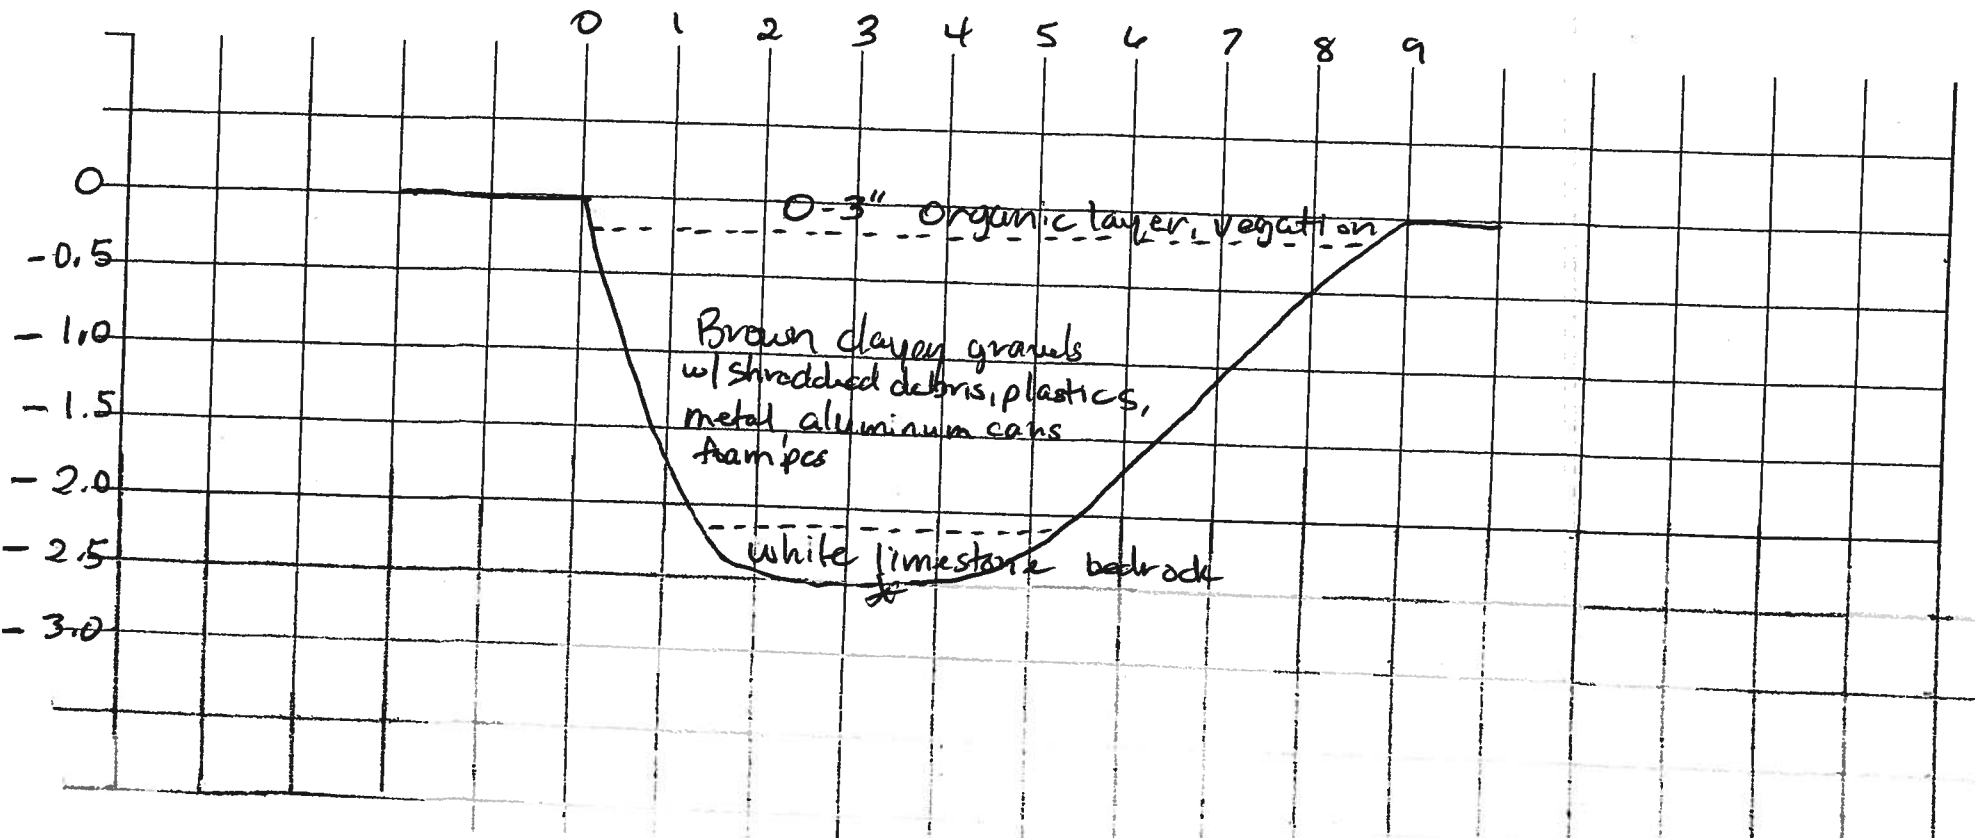 0 1 2 3 4 5 6 7 8 9
0
0-3" organic layer, vegattion
-0.5
-1.0
Brown clayey gravels
w/ shredded debris, plastics,
-1.5
metal, aluminum cans
foam pcs
-2.0
-2.5
white limestone bedrock
-3.0